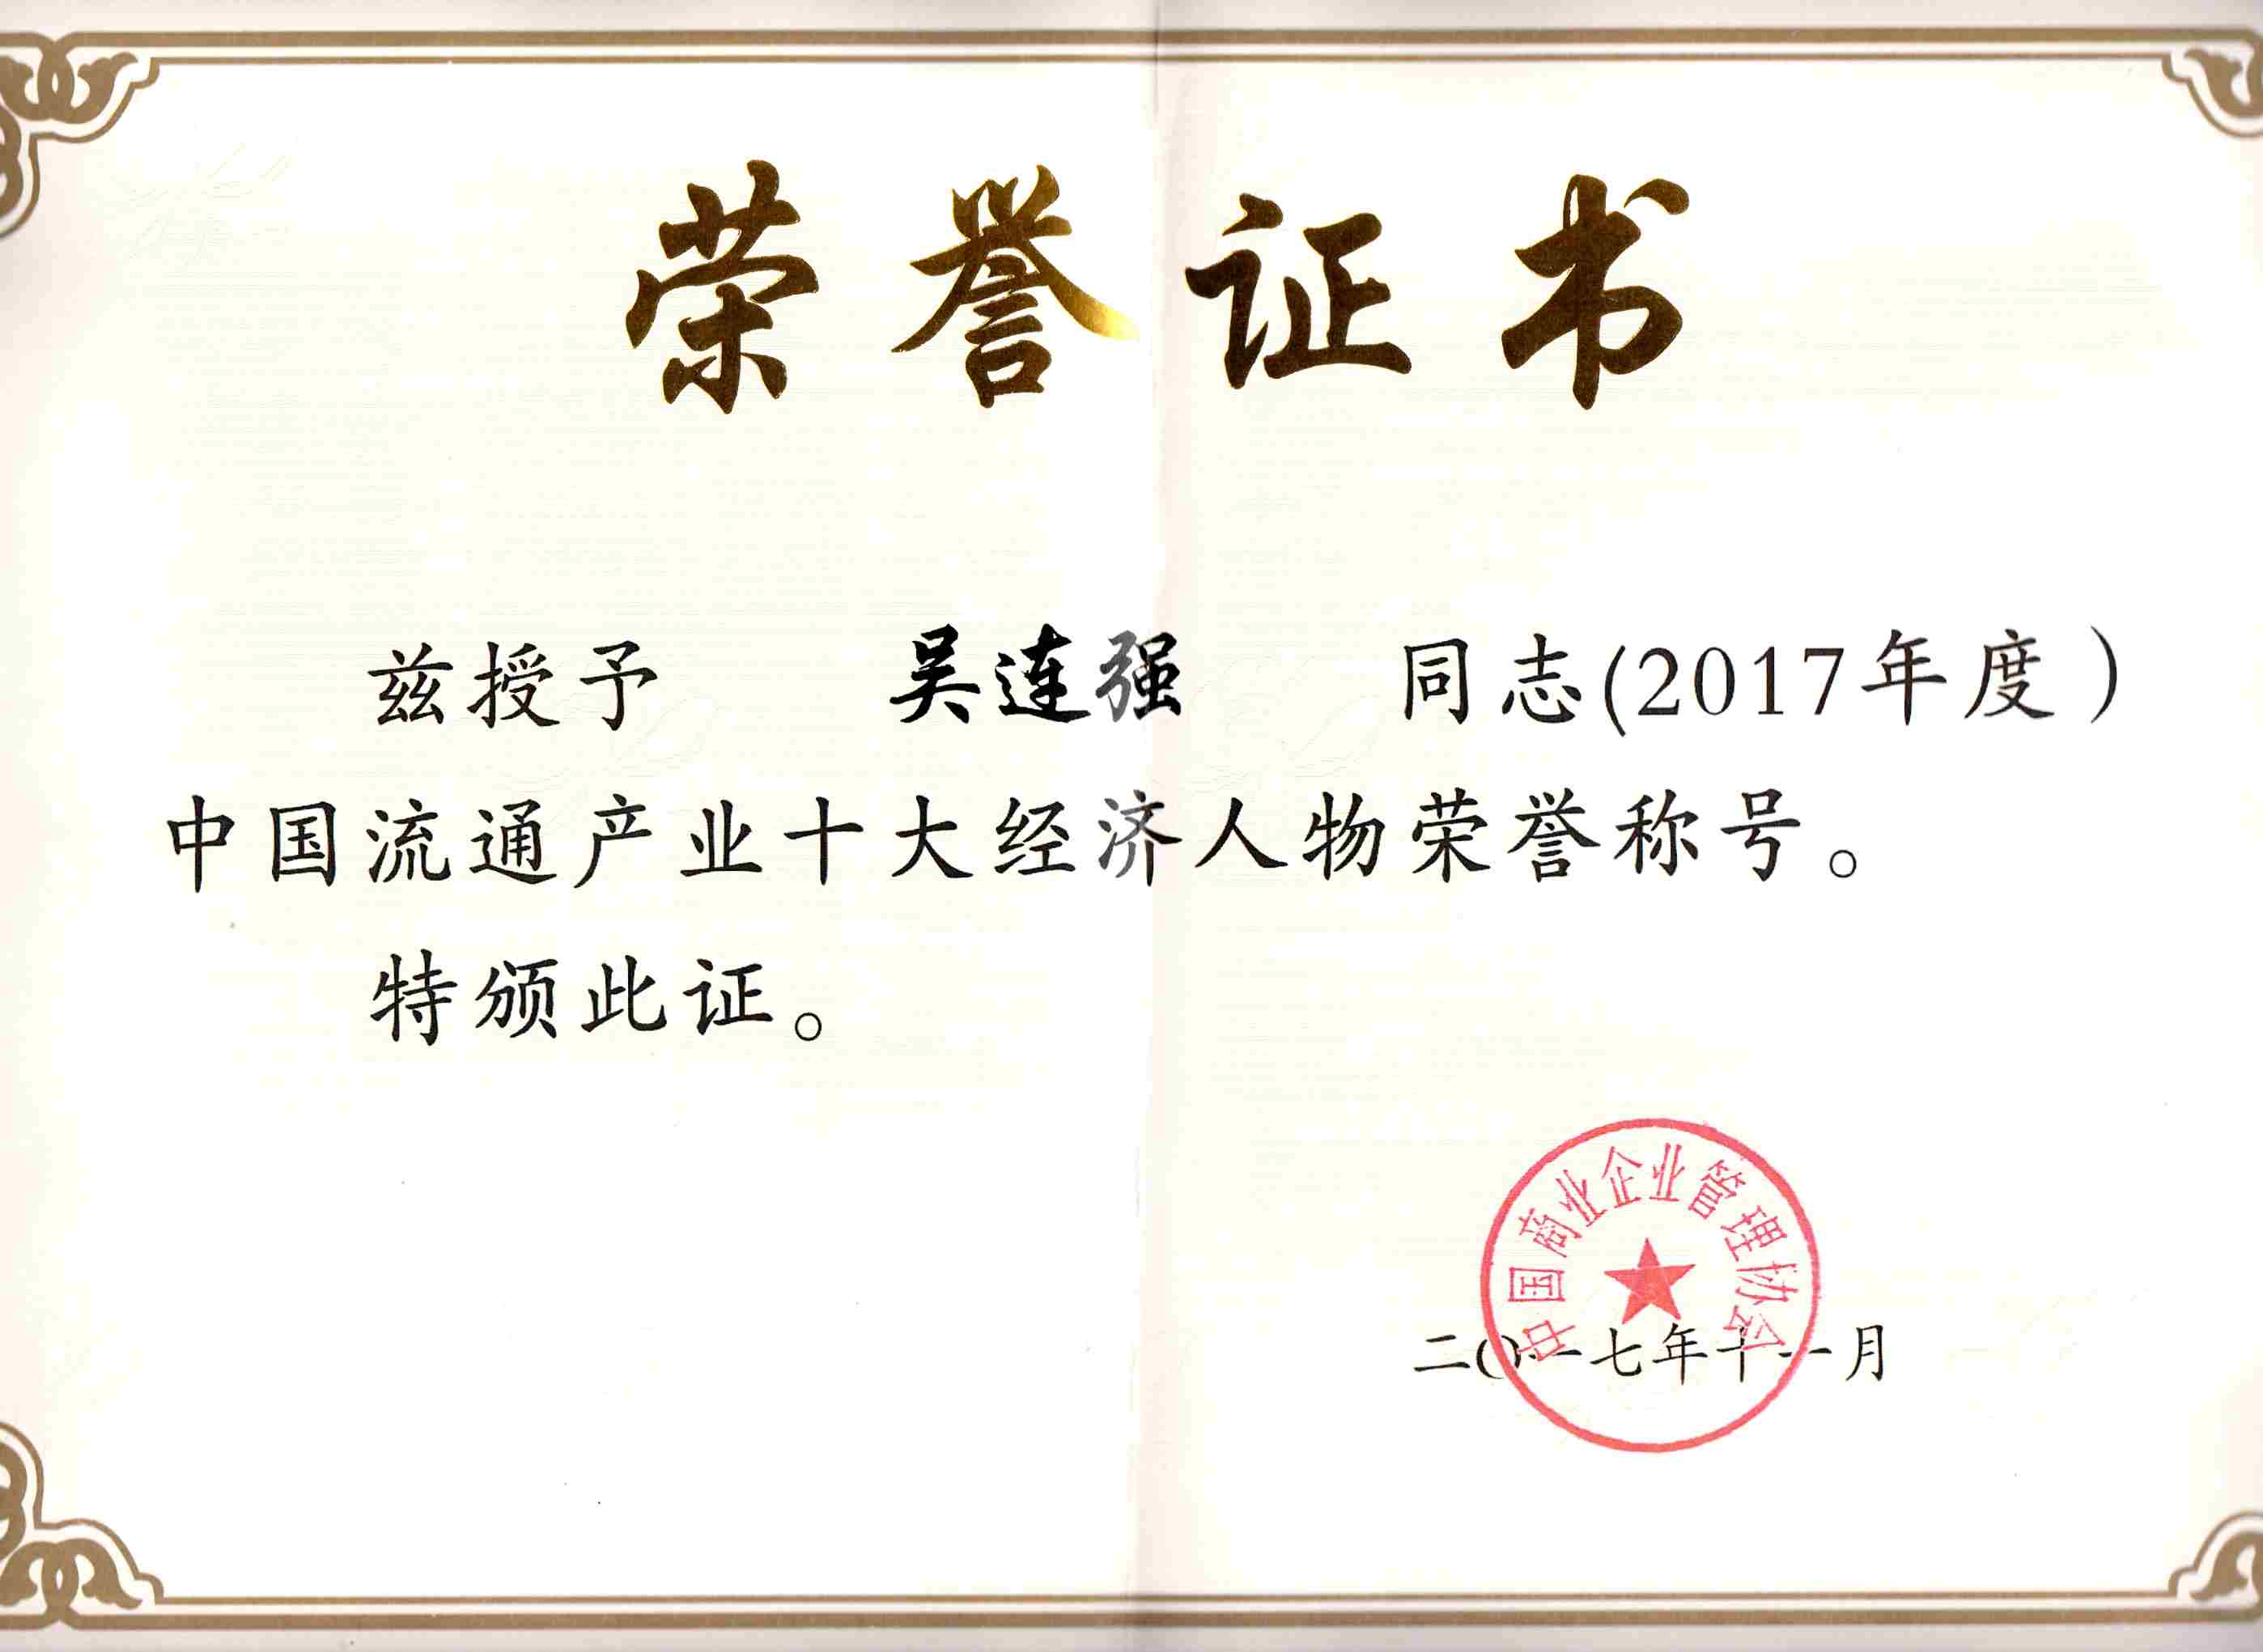 荣誉证书
兹授予 吴连强 同志(2017年度)
中国流通产业十大经济人物荣誉称号。
特颁此证。
中国商业企业管理协会
二〇一七年十一月